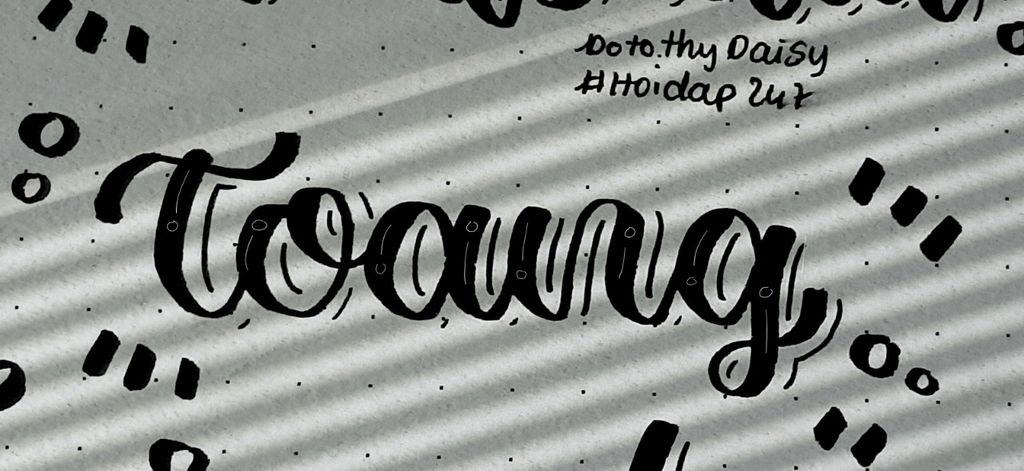 Dorothy Daisy
#Hoidap 247
Toang